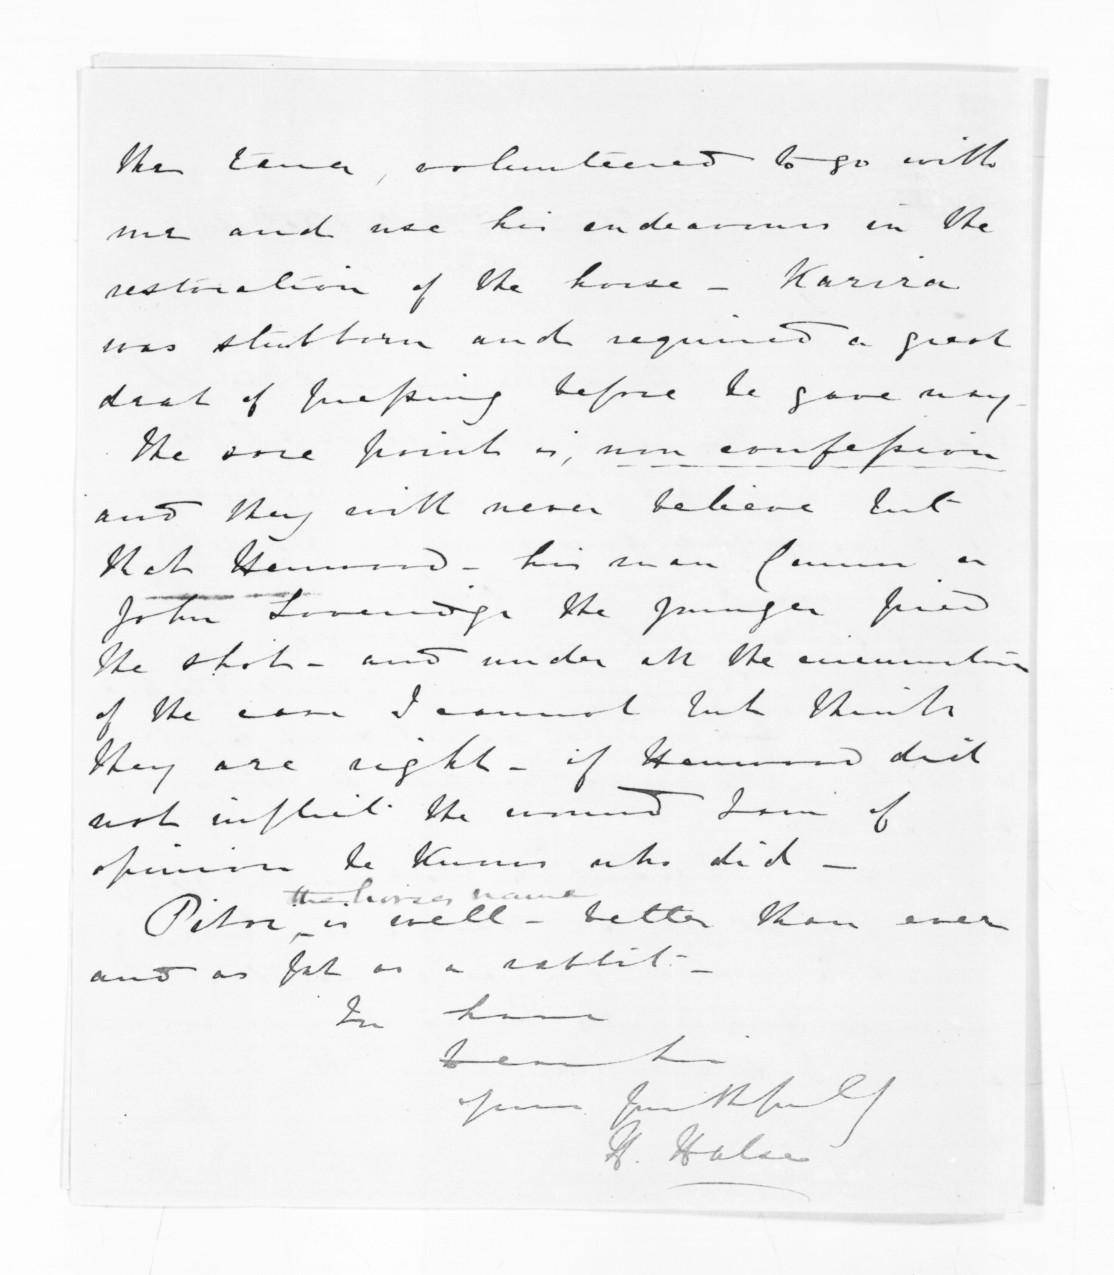 the Taua, volunteered to go with
me and use his endeavours in the
restoration of the horse - Karira
was stubborn and required a great
deal of pressing before he gave way -
The sore point is, non confession
and they will never believe but
that Henwood - his man or
John Loveridge the younger fired
the shot - and under all the circumstances
of the case I cannot but think
they are right - if Henwood did
not inflict the wound I am of
opinion he knows who did -
the horses name
is well - better than ever
and as fat as a rabbit -
In haste
yours faithfully
H. Halse